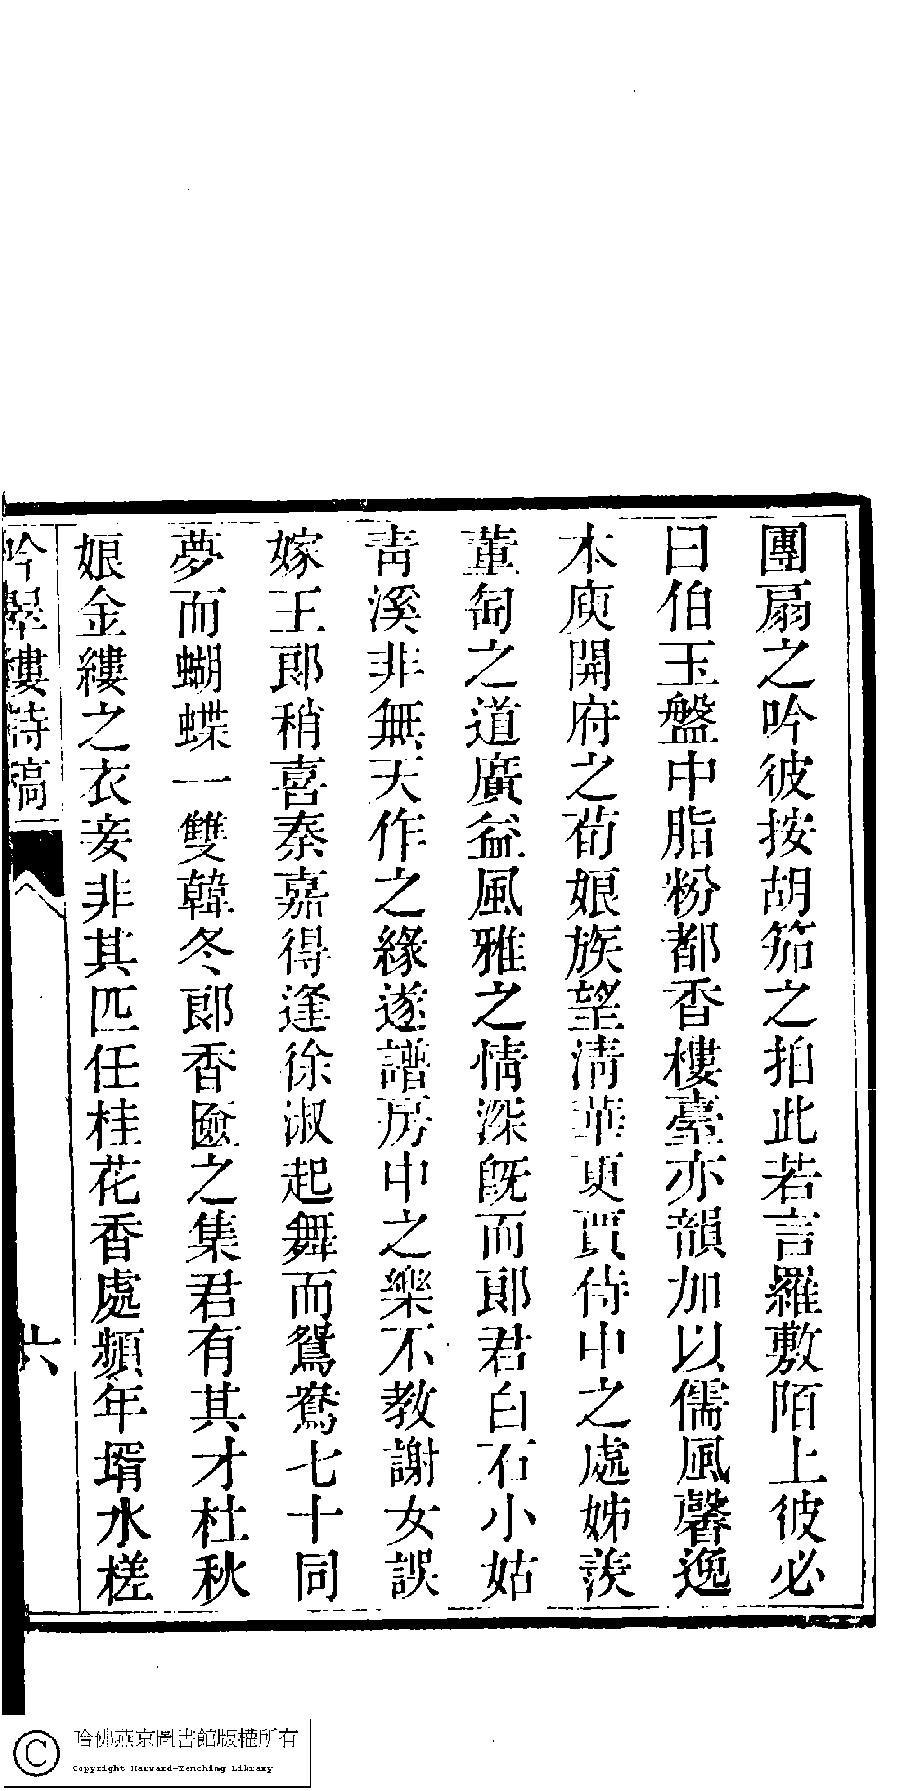 團扇之吟彼按胡笳之拍此若言羅敷陌上彼必
曰伯玉盤中脂粉都香樓臺亦韻加以儒風馨逸
本庾開府之荀娘族望清華更賈侍中之處姊羨
董匋之道廣益風雅之情深旣而郎君白石小姑
青溪非無天作之緣遂譜房中之樂不教謝女誤
嫁王郎稍喜秦嘉得逢徐淑起舞而鴛鴦七十同
夢而蝴蝶一雙韓冬郎香匳之集君有其才杜秋
娘金縷之衣妾非其匹任桂花香處頻年壻水槎
吟翠樓詩稿
六
哈佛燕京圖書館版權所有
Copyright Harvard-Yenching Library